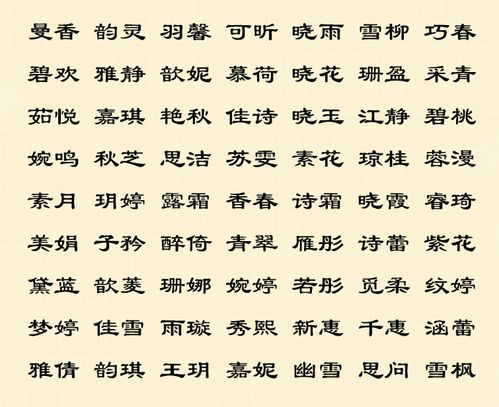 曼香 韵灵 羽馨 可昕 晓雨 雪柳 巧春
碧欢 雅静 歆妮 慕荷 晓花 珊盈 采青
茹悦 嘉琪 艳秋 佳诗 晓玉 江静 碧桃
婉鸣 秋芝 思洁 苏雯 素花 琼桂 蓉漫
素月 玥婷 露霜 香春 诗霜 晓霞 睿琦
美娟 子矜 醉倚 青翠 雁彤 诗蕾 紫花
黛蓝 歆菱 珊娜 婉婷 若彤 觅柔 纹婷
梦婷 佳雪 雨璇 秀熙 新惠 千惠 涵蕾
雅倩 韵琪 王玥 嘉妮 幽雪 思问 雪枫